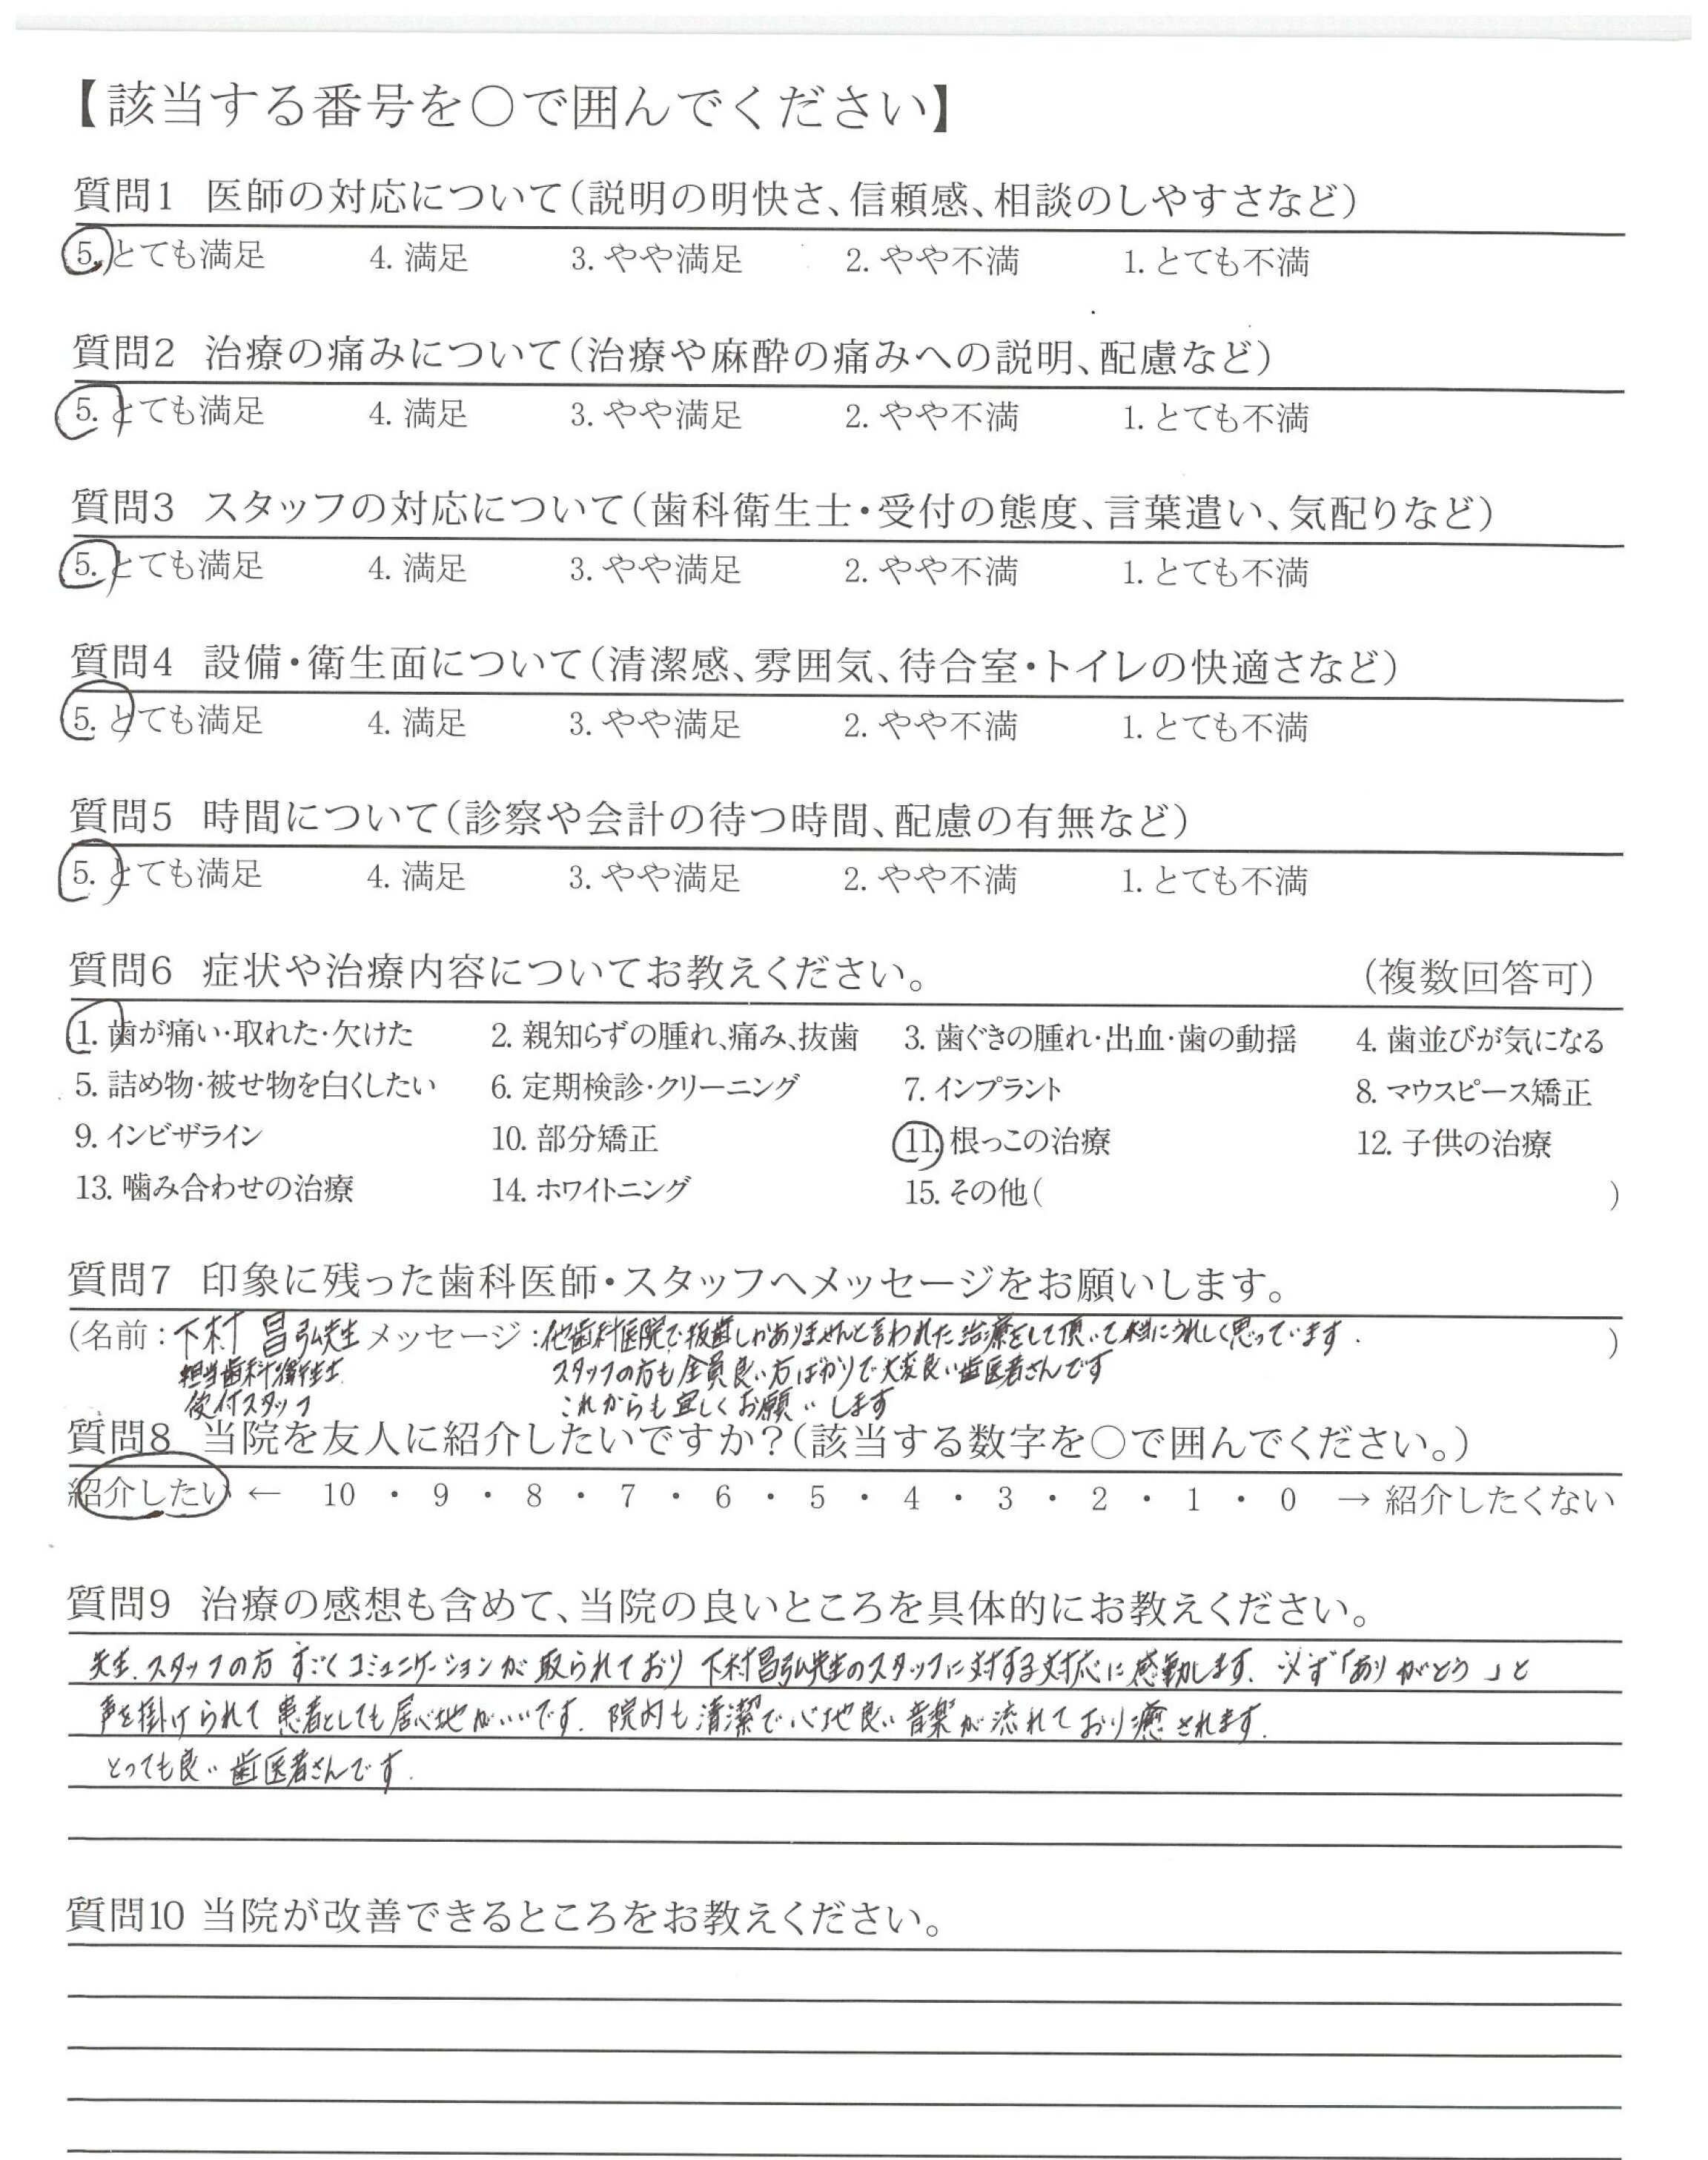 【該当する番号を○で囲んでください】
質問1 医師の対応について(説明の明快さ、信頼感、相談のしやすさなど)
5. とても満足 4. 満足 3. やや満足 2. やや不満 1. とても不満
質問2 治療の痛みについて(治療や麻酔の痛みへの説明、配慮など)
5. とても満足 4. 満足 3. やや満足 2. やや不満 1. とても不満
質問3 スタッフの対応について(歯科衛生士・受付の態度、言葉遣い、気配りなど)
5. とても満足 4. 満足 3. やや満足 2. やや不満 1. とても不満
質問4 設備・衛生面について(清潔感、雰囲気、待合室・トイレの快適さなど)
5. とても満足 4. 満足 3. やや満足 2. やや不満 1. とても不満
質問5 時間について(診察や会計の待つ時間、配慮の有無など)
5. とても満足 4. 満足 3. やや満足 2. やや不満 1. とても不満
質問6 症状や治療内容についてお教えください。 (複数回答可)
1. 歯が痛い・取れた・欠けた 2. 親知らずの腫れ、痛み、抜歯 3. 歯ぐきの腫れ・出血・歯の動揺 4. 歯並びが気になる
5. 詰め物・被せ物を白くしたい 6. 定期検診・クリーニング 7. インプラント 8. マウスピース矯正
9. インビザライン 10. 部分矯正 11. 根っこの治療 12. 子供の治療
13. 噛み合わせの治療 14. ホワイトニング 15. その他( )
質問7 印象に残った歯科医師・スタッフへメッセージをお願いします。
(名前：下村 昌弘先生 メッセージ：他歯科医院で抜歯しかありませんと言われた治療をして頂いて本当にうれしく思っています. )
担当歯科衛生士 スタッフの方も全員良い方ばかりで大変良い歯医者さんです
受付スタッフ これからも宜しくお願いします
質問8 当院を友人に紹介したいですか?(該当する数字を○で囲んでください。)
紹介したい ← 10 ・ 9 ・ 8 ・ 7 ・ 6 ・ 5 ・ 4 ・ 3 ・ 2 ・ 1 ・ 0 → 紹介したくない
質問9 治療の感想も含めて、当院の良いところを具体的にお教えください。
先生.スタッフの方 すごくコミュニケーションが取られており 下村昌弘先生のスタッフに対する対応に感動します. 必ず「ありがとう」と
声を掛けられて 患者としても居心地がいいです. 院内も清潔で心地良い音楽が流れており癒されます.
とっても良い歯医者さんです.
質問10 当院が改善できるところをお教えください。